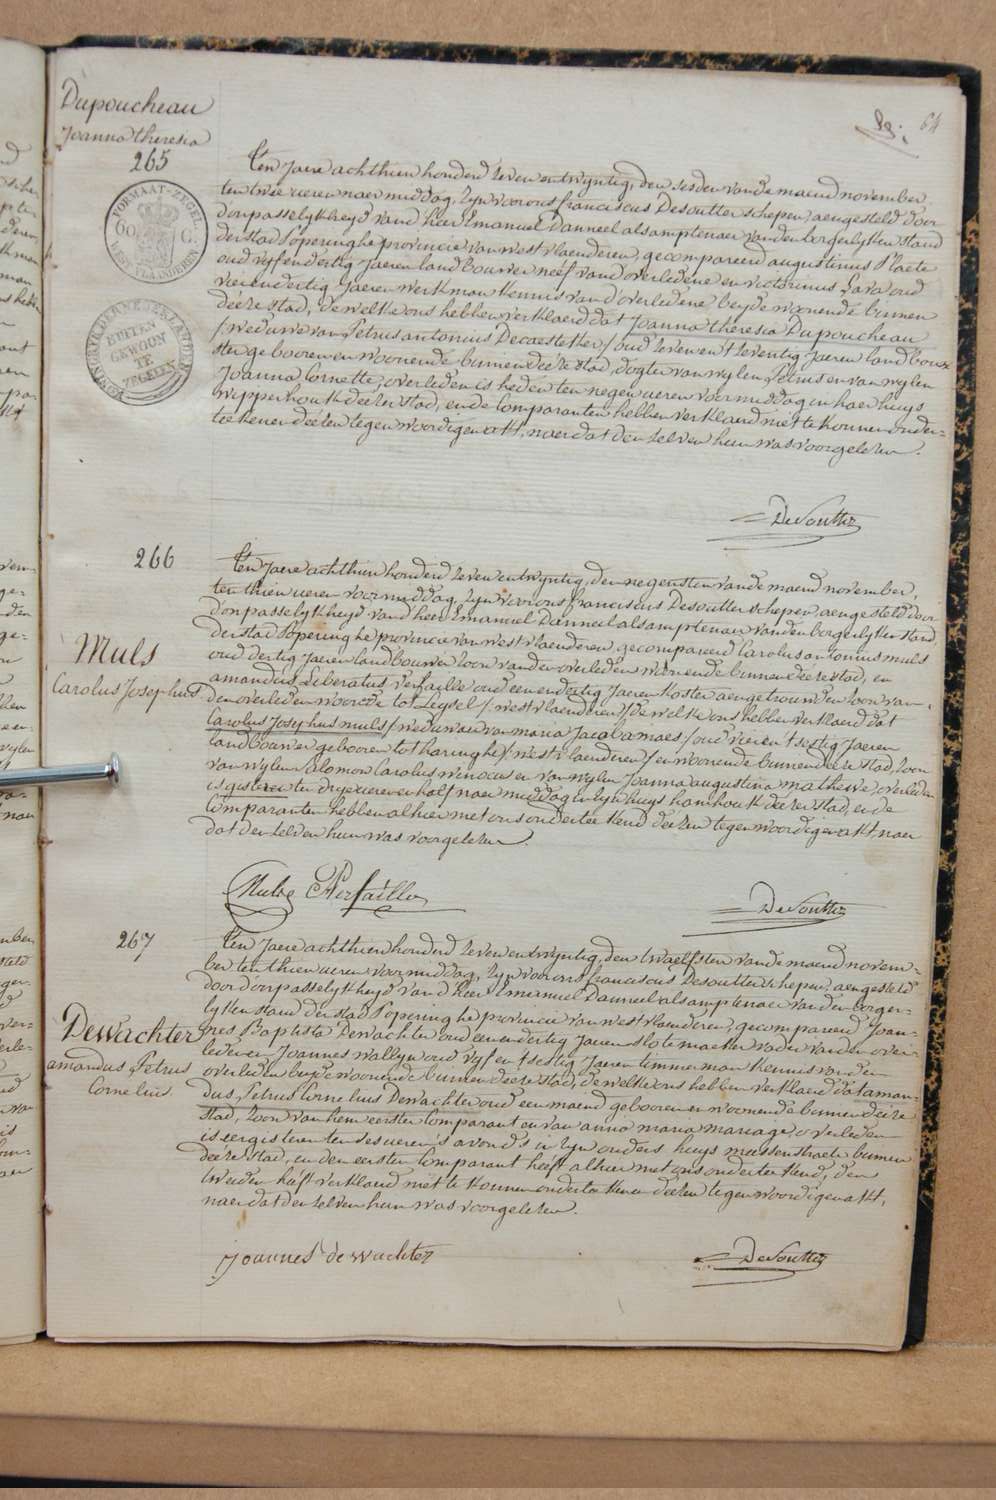 Dupoucheau
Joanna theresia
265
64
FORMAAT-ZEGEL
60 C.
WEST-VLAANDEREN
KONINGRYK DER NEDERLANDEN
BUITEN
GEWOON
TE
ZEGELEN
Ten Jaere achthien honderd zeven entwyntig, den sesden van de maend november,
ten twee ueren naer middag, zyn voor ons franciscus Desoutter schepen, aengesteld door
d'onpasselykheyd van d'heer Emanuel Danneel als amptenaer van den borgerlyken stand
der stad Poperinghe provincie van westvlaenderen, gecompareerd augustinus Plaete
oud vyf en dertig Jaeren landbouwer neéf van d'overledene en victorinus Lava oud
vierendertig Jaeren werkman kennis van d'overledene beyde woonende binnen
deéze stad, de welke ons hebben verklaerd dat Joanna Theresia Dupoucheau
/ weduwe van Petrus antonius Decaestecker / oud zeven en tseventig Jaeren landbouw-
ster gebooren en woonende binnen deéze stad, dogter van wylen Petrus en van wylen
Joanna Cornette, overleden is heden ten negen ueren voormiddag in haer huys
wipperhoutk deézer stad, en de Comparanten hebben verklaerd niét te konnen onder-
teékenen deézen tegenwoordigen akt, naer dat den zelven hun was voorgelezen.
DeSoutter
266
Muls
Carolus Josephus
Ten Jaere achthien honderd zeven entwyntig, den negensten van de maend november,
ten thien ueren voormiddag, zyn voor ons franciscus Desoutter schepen, aengesteld door
d'onpasselykheyd van d'heer Emanuel Danneel als amptenaer van den borgerlyken stand
der stad Poperinghe provincie van westvlaenderen, gecompareerd Carolus antonius muls
oud dertig Jaeren landbouwer zoon van den overleden woonende binnen deéze stad, en
amandus Liberatus verfaillie oud een en dertig Jaeren koster aengetrouwden zoon van
den overleden woonende tot Leysel / westvlaenderen / de welke ons hebben verklaerd dat
Carolus Josephus muls / weduwaer van maria Jacoba maes / oud vier en tsestig Jaeren
landbouwer gebooren tot haringhe / westvlaenderen / en woonende binnen deéze stad, zoon
van wylen Salomon Carolus winocus en van wylen Joanna augustina matheve, overleden
is gisteren ten drye ueren en half naer middag in zyn huys hamhoutk deézer stad, en de
Comparanten hebben alhier met ons onderteékend deézen tegenwoordigen akt, naer
dat den zelven hun was voorgelezen.
Muls Verfaillie
DeSoutter
267
DeWachter
amandus Petrus
Cornelius
Ten Jaere achthien honderd zeven entwyntig, den twaelfsten van de maend novem-
ber ten thien ueren voormiddag, zyn voor ons franciscus Desoutter schepen, aengesteld
door d'onpasselykheyd van d'heer Emanuel Danneel als amptenaer van den borger-
lyken stand der stad Poperinghe provincie van westvlaenderen, gecompareerd Joan-
nes Baptista Dewachter oud een en dertig Jaeren slotemaeker vader van den over-
leden en Joannes wallyn oud vyf en tsestig Jaeren timmerman kennis van den
overleden beyde woonende binnen deéze stad, de welke ons hebben verklaerd dat aman-
dus, Petrus Cornelius Dewachter oud een maend gebooren en woonende binnen deéze
stad, zoon van hem eersten Comparant en van anna maria mariage, overleden
is eergisteren ten ses ueren 's avonds in zyn ouders huys meessenstraete binnen
deéze stad, en den eersten Comparant heéft alhier met ons onderteékend, den
tweéden heéft verklaerd niet te konnen onderteékenen deézen tegenwoordigen akt,
naer dat den zelven hun was voorgelezen.
joannes de wachter
DeSoutter